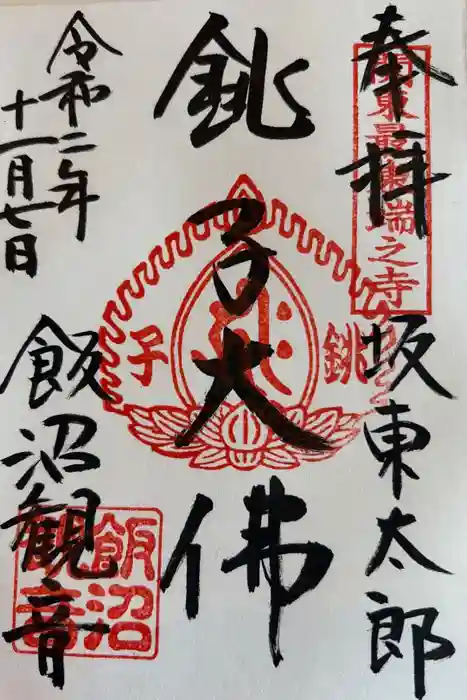 奉拝
関東最東端之寺
坂東太郎
銚子大佛
銚子
令和二年
十一月七日
飯沼観音
飯沼観音